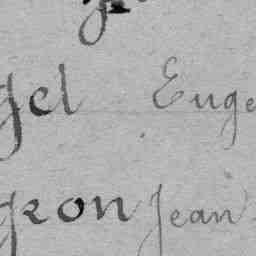 gel Euge
geon Jean